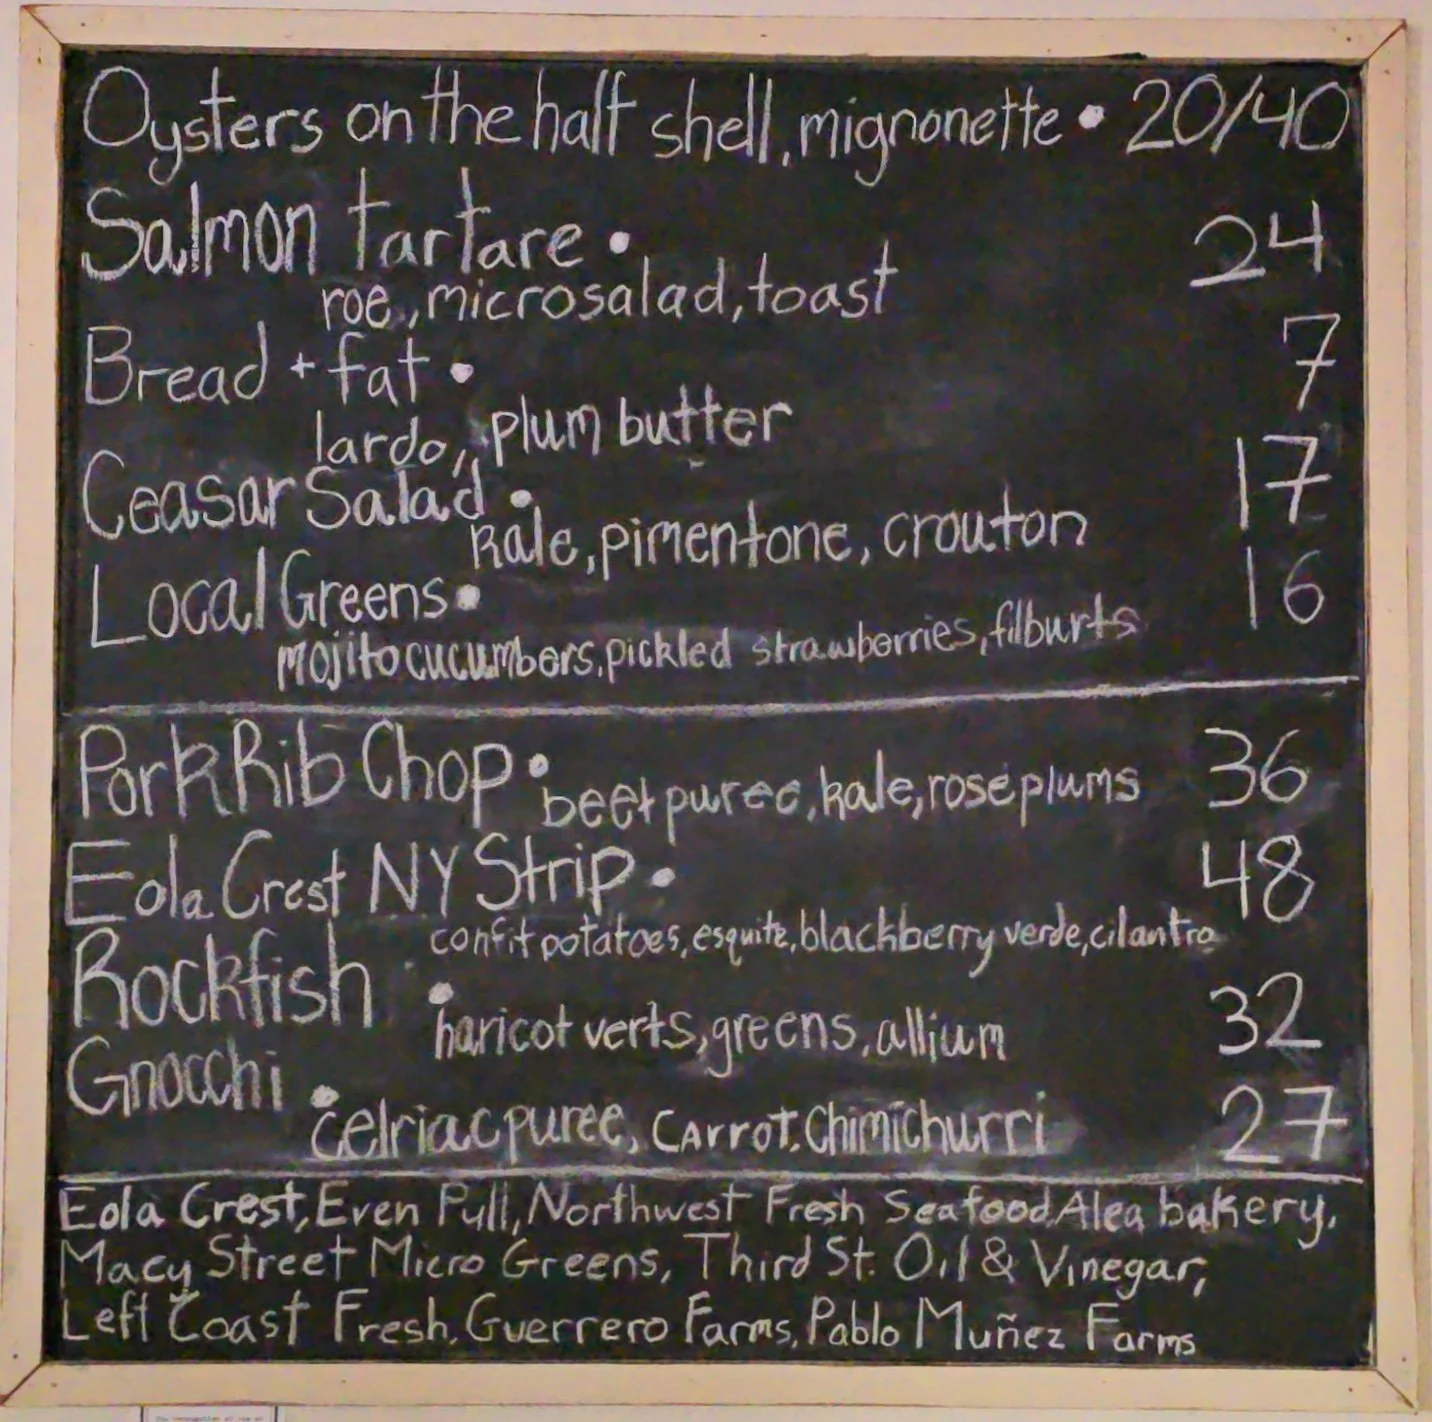 Oysters on the half shell, mignonette • 20/40
Salmon tartare • 24
roe, microsalad, toast
Bread + fat • 7
lardo, plum butter
Ceasar Salad • 17
kale, pimentone, crouton
Local Greens • 16
mojito cucumbers, pickled strawberries, filburts
Pork Rib Chop • beet puree, kale, rosé plums 36
Eola Crest NY Strip • 48
confit potatoes, esquite, blackberry verde, cilantro
Rockfish • haricot verts, greens, allium 32
Gnocchi • celriac puree, carrot, chimichurri 27
Eola Crest, Even Pull, Northwest Fresh Seafood, Alea bakery,
Macy Street Micro Greens, Third St. Oil & Vinegar,
Left Coast Fresh, Guerrero Farms, Pablo Muñez Farms